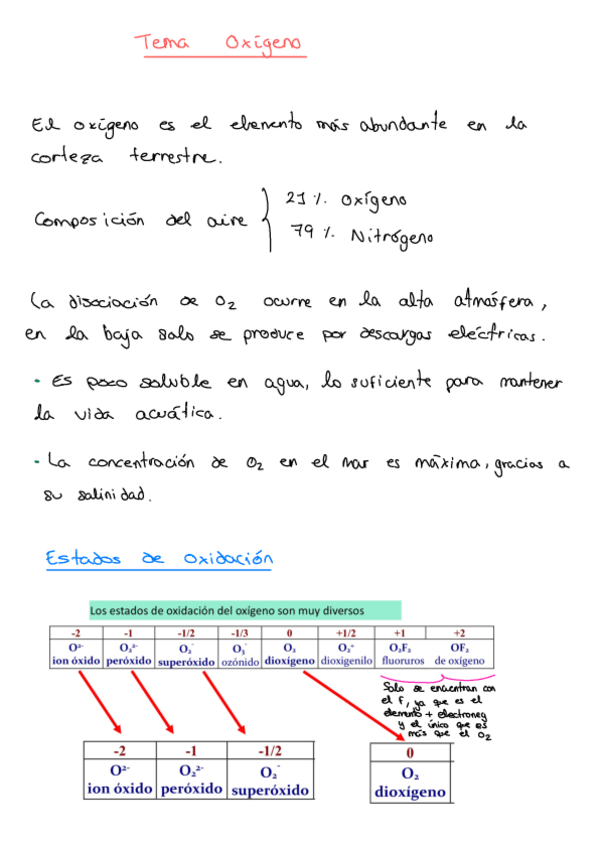 Tema Oxígeno
El oxígeno es el elemento más abundante en la
corteza terrestre.
Composición del aire { 21 % Oxígeno
79 % Nitrógeno
La disociación de O₂ ocurre en la alta atmósfera,
en la baja solo se produce por descargas eléctricas.
• Es poco soluble en agua, lo suficiente para mantener
la vida acuática.
• La concentración de O₂ en el mar es máxima, gracias a
su salinidad.
Estados de oxidación
Los estados de oxidación del oxígeno son muy diversos
-2 -1 -1/2 -1/3 0 +1/2 +1 +2
O²⁻ O₂²⁻ O₂⁻ O₃⁻ O₂ O₂⁺ O₂F₂ OF₂
ion óxido peróxido superóxido ozónido dioxígeno dioxigenilo fluoruros de oxígeno
Solo se encuentran con
el F, ya que es el
elemento + electroneg
y el único que es
más que el O₂
-2 -1 -1/2
O²⁻ O₂²⁻ O₂⁻
ion óxido peróxido superóxido
0
O₂
dioxígeno